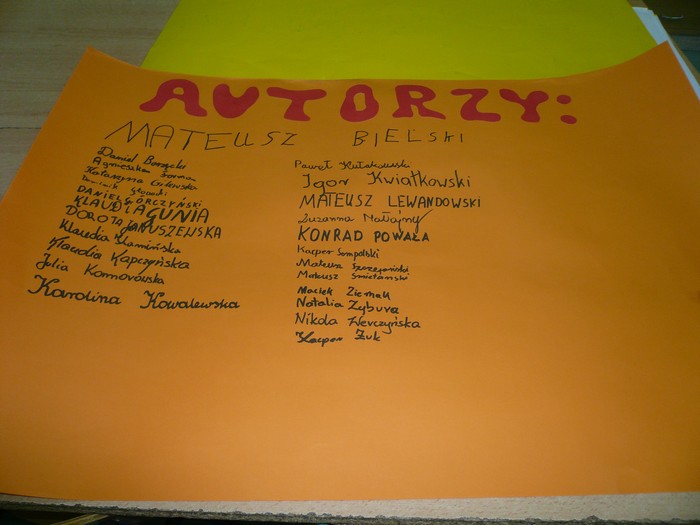 AUTORZY:
MATEUSZ BIELSKI
Daniel
Agnieszka
Katarzyna
Dominik Głowski
DANIEL GÓRCZYŃSKI
KLAUDIA GUNIA
DOROTA JANUSZEWSKA
Klaudia Kamińska
Klaudia Kapczyńska
Julia Komorowska
Karolina Kowalewska
Paweł
Igor Kwiatkowski
MATEUSZ LEWANDOWSKI
Zuzanna Małajny
KONRAD POWAŁA
Kacper Sompolski
Mateusz
Mateusz Śmietański
Maciek Ziemak
Natalia Zybura
Nikola Werczyńska
Kacper Żuk